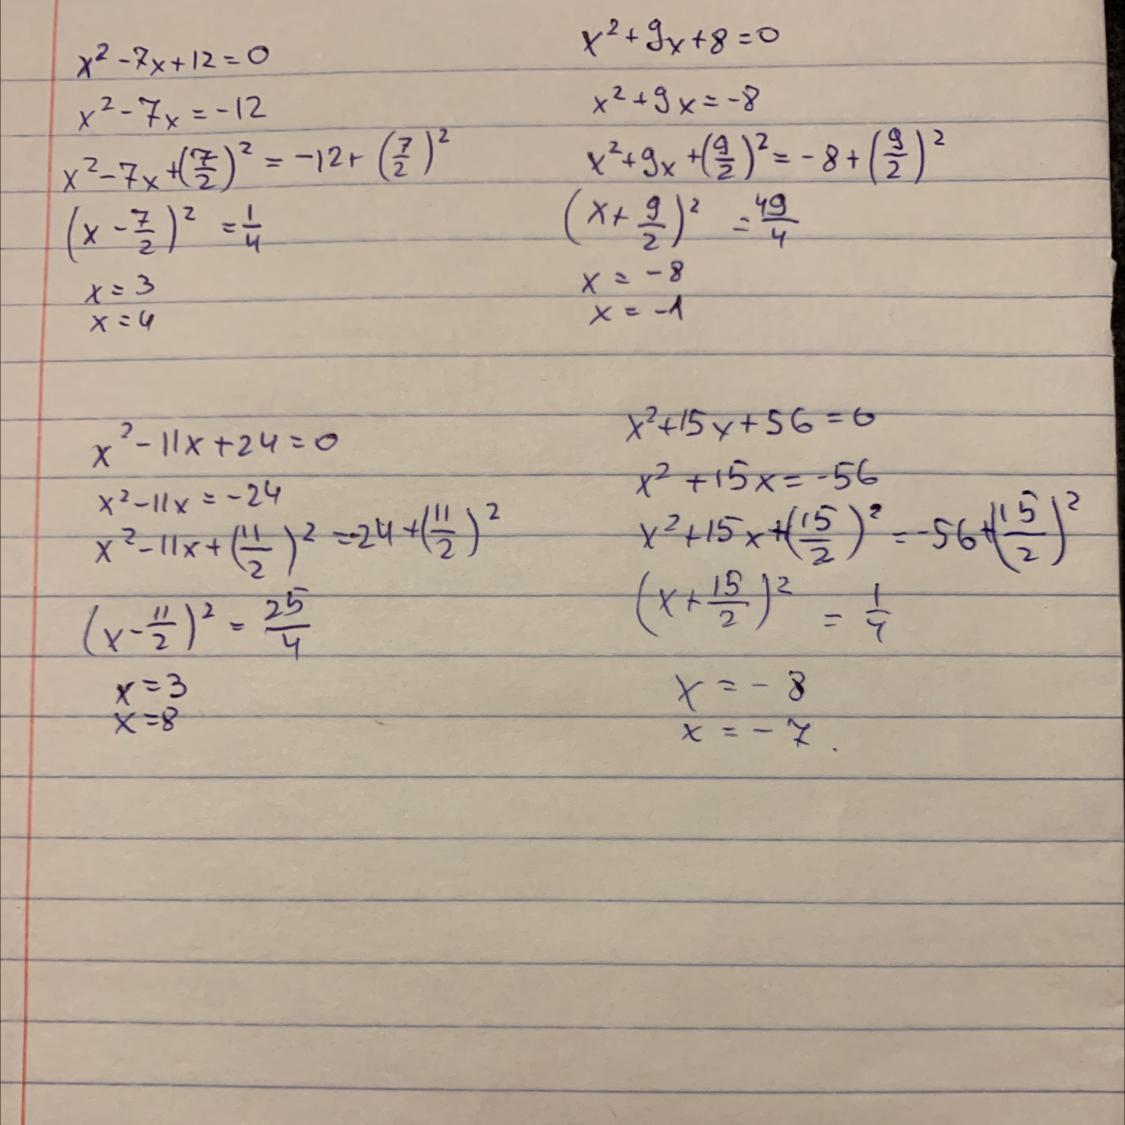 x² - 7x + 12 = 0
x² - 7x = -12
x² - 7x + (7/2)² = -12 + (7/2)²
(x - 7/2)² = 1/4
x = 3
x = 4
x² + 9x + 8 = 0
x² + 9x = -8
x² + 9x + (9/2)² = -8 + (9/2)²
(x + 9/2)² = 49/4
x = -8
x = -1
x² - 11x + 24 = 0
x² - 11x = -24
x² - 11x + (11/2)² = -24 + (11/2)²
(x - 11/2)² = 25/4
x = 3
x = 8
x² + 15x + 56 = 0
x² + 15x = -56
x² + 15x + (15/2)² = -56 + (15/2)²
(x + 15/2)² = 1/4
x = -8
x = -7.